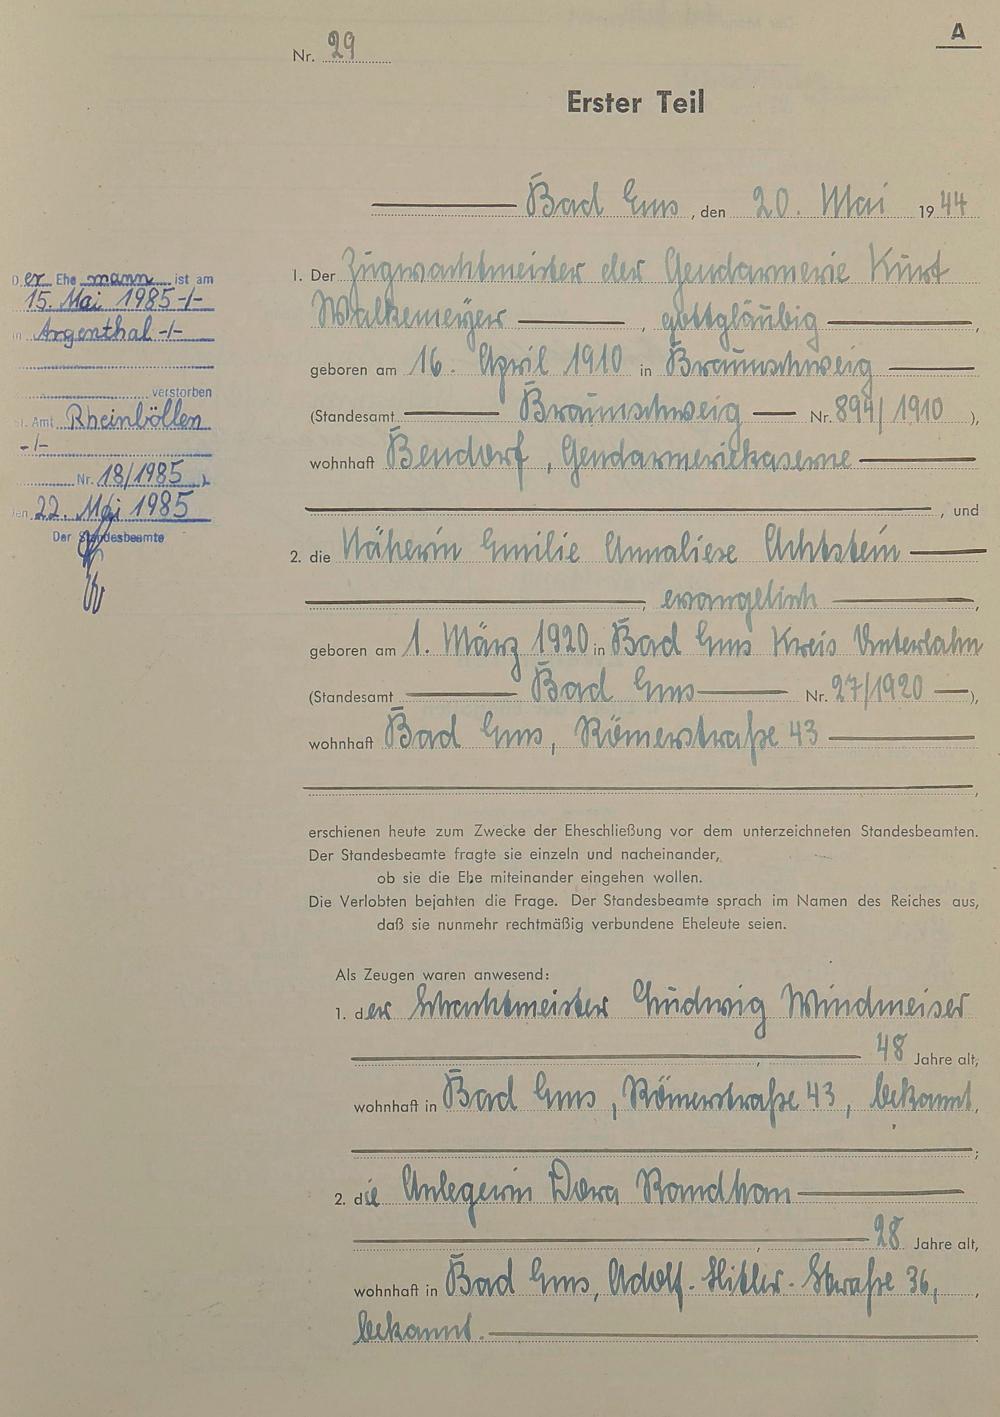 A
Nr. 29
Erster Teil
Bad Ems, den 20. Mai 1944
1. Der Zugwachtmeister der Gendarmerie Kurt
Walkemeyer, gottgläubig,
geboren am 16. April 1910 in Braunschweig
(Standesamt Braunschweig Nr. 894/1910),
wohnhaft Bendorf, Gendarmeriekaserne
, und
2. die Näherin Emilie Annaliese Achtstein
, evangelisch,
geboren am 1. März 1920 in Bad Ems Kreis Unterlahn
(Standesamt Bad Ems Nr. 27/1920),
wohnhaft Bad Ems, Römerstraße 43
,
erschienen heute zum Zwecke der Eheschließung vor dem unterzeichneten Standesbeamten.
Der Standesbeamte fragte sie einzeln und nacheinander,
ob sie die Ehe miteinander eingehen wollen.
Die Verlobten bejahten die Frage. Der Standesbeamte sprach im Namen des Reiches aus,
daß sie nunmehr rechtmäßig verbundene Eheleute seien.
Als Zeugen waren anwesend:
1. der Wachtmeister Ludwig Windmeiser
, 48 Jahre alt,
wohnhaft in Bad Ems, Römerstraße 43, bekannt,
;
2. die Anlegerin Dora
, 28 Jahre alt,
wohnhaft in Bad Ems, Adolf-Hitler-Straße 36,
bekannt.
Der Ehemann ist am
15. Mai 1985 -/-
in Argenthal -/-
verstorben
St. Amt Rheinböllen
-/-
Nr. 18/1985 )
den 22. Mai 1985
Der Standesbeamte